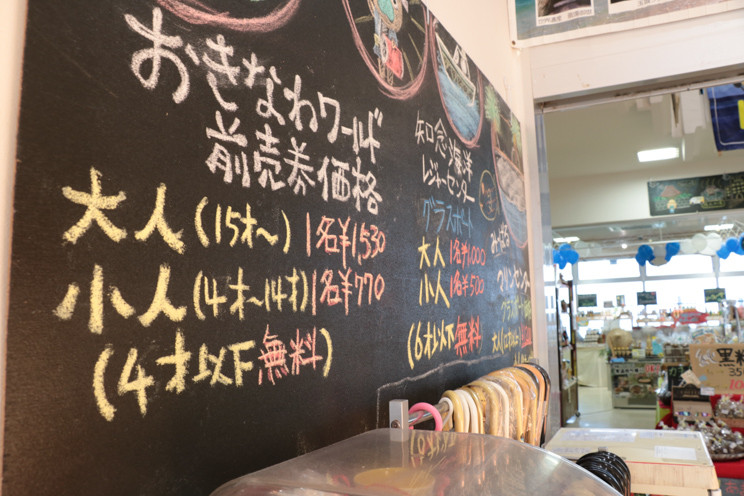 おきなわワールド
前売券価格
大人(15才~) 1名¥1,530
小人(4才~14才) 1名¥770
(4才以下無料)
知念海洋
レジャーセンター
グラスボート
大人 1名¥1,000
小人 1名¥500
(6才以下無料)
みばる
マリンセンター
グラスボート
黒糖